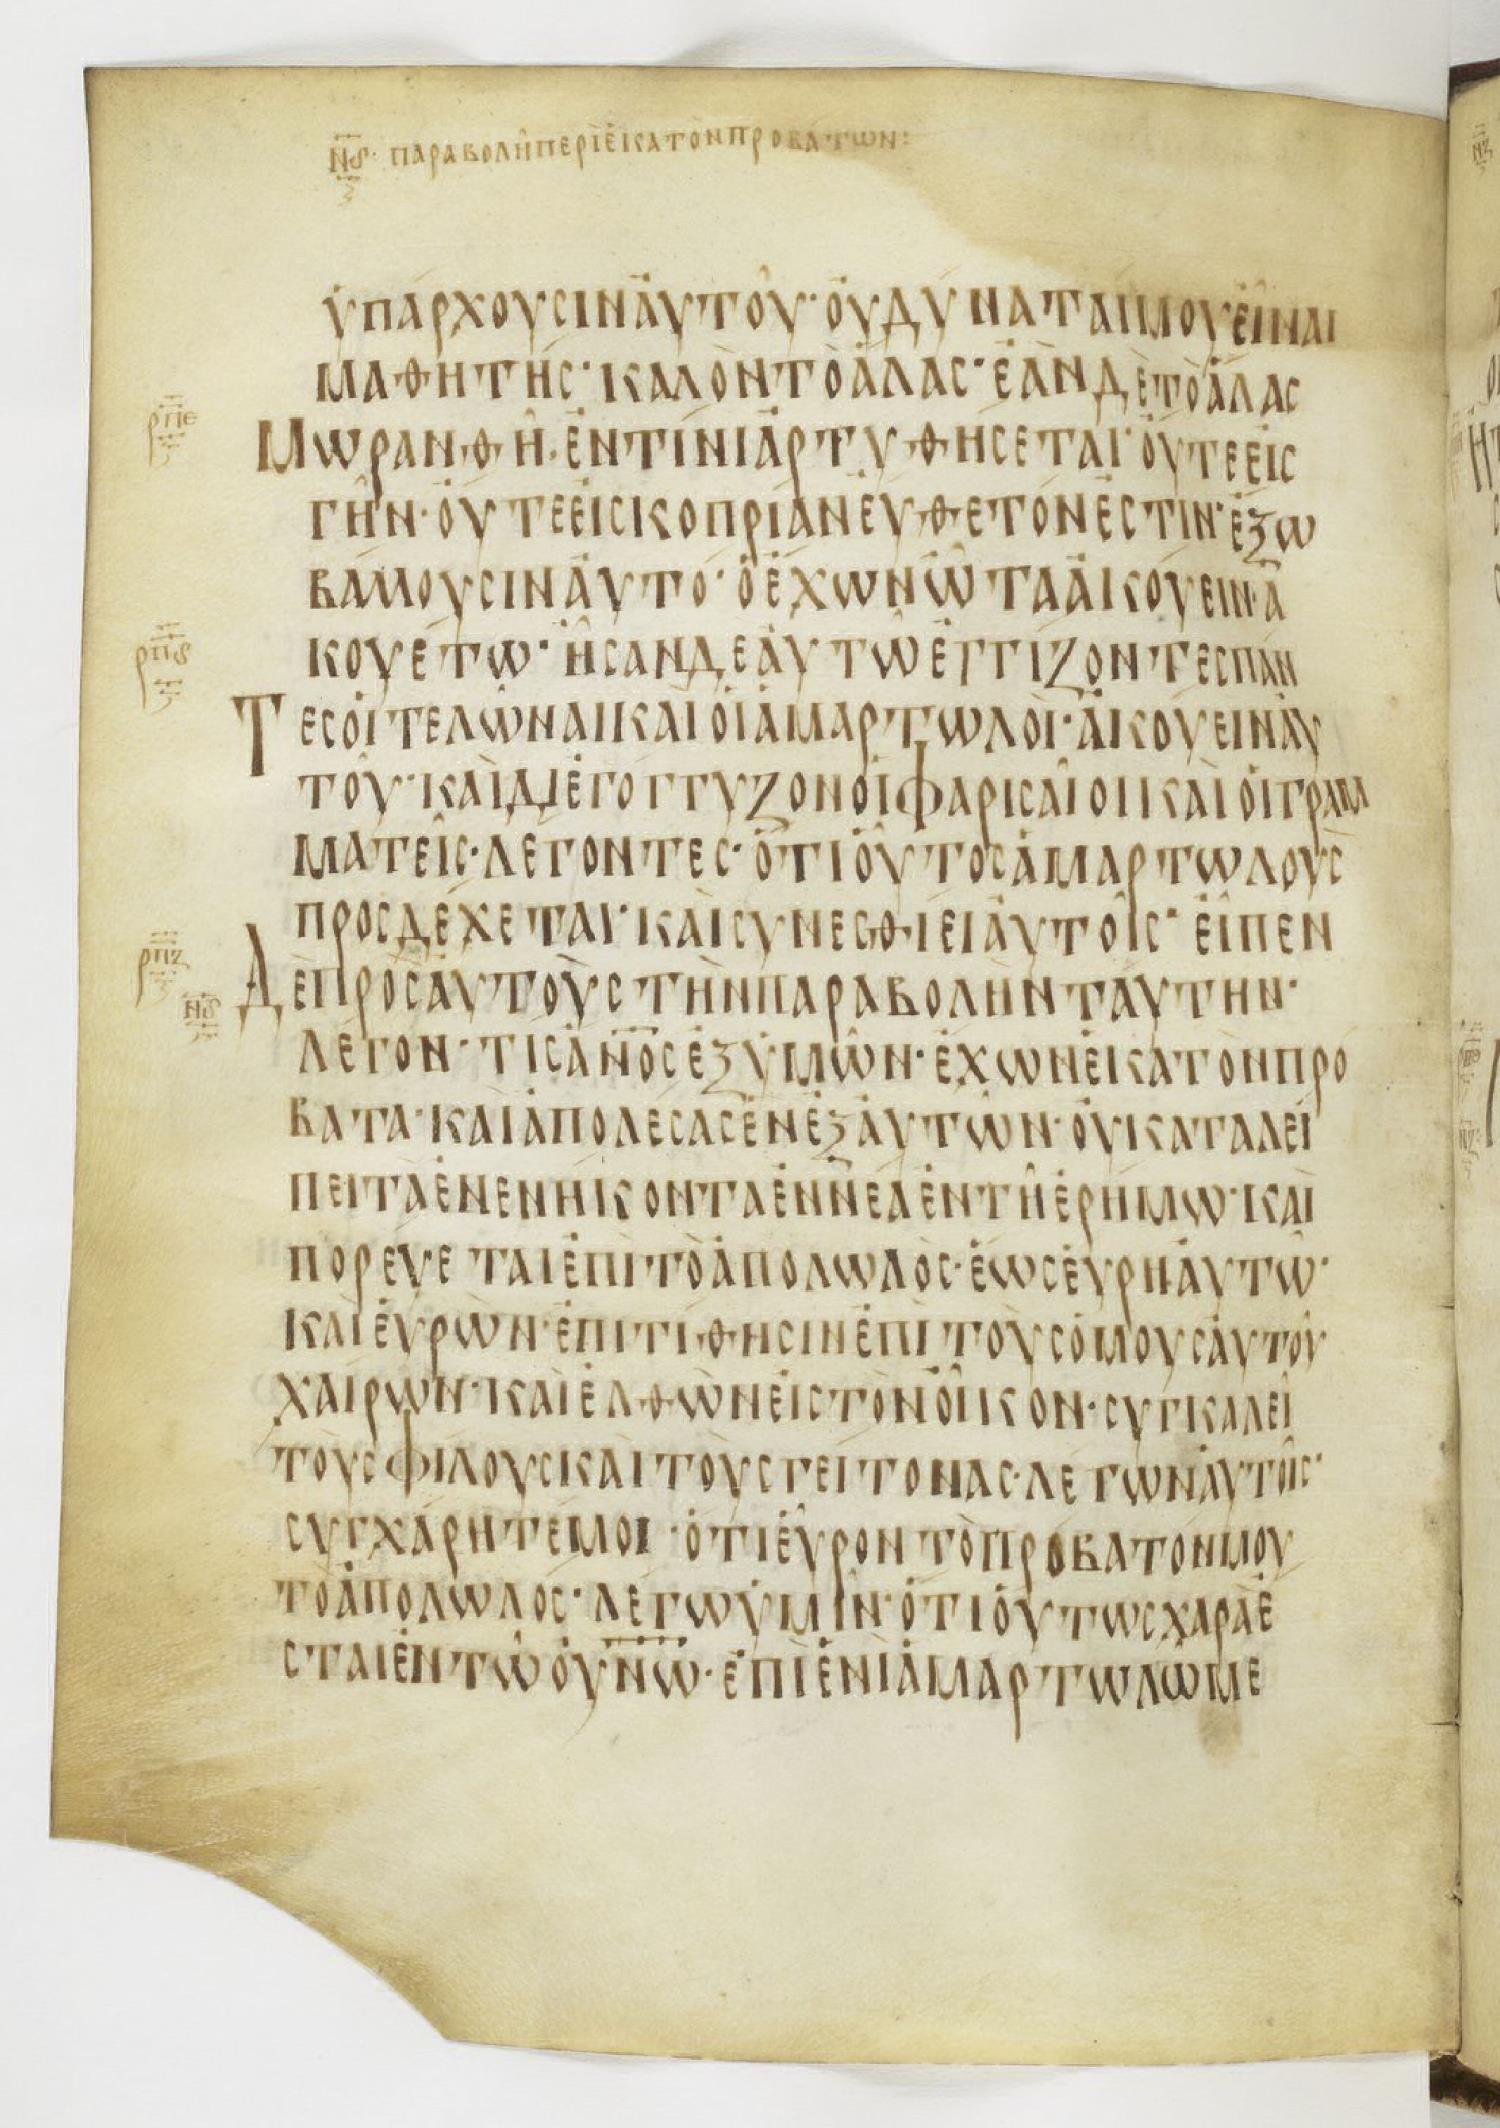 Νϛ· ΠΑΡΑΒΟΛΗ ΠΕΡΙ ἙΚΑΤΟΝ ΠΡΟΒΑΤΩΝ:
ὙΠΑΡΧΟΥϹΙΝ ΑΥΤΟΥ· ΟΥ ΔΥΝΑΤΑΙ ΜΟΥ ΕΙΝΑΙ
ΜΑΘΗΤΗϹ· ΚΑΛΟΝ ΤΟ ΑΛΑϹ· ΕΑΝ ΔΕ ΤΟ ΑΛΑϹ
ΡΠΕ ΜΩΡΑΝΘΗ· ΕΝ ΤΙΝΙ ΑΡΤΥΘΗϹΕΤΑΙ· ΟΥΤΕ ΕΙϹ
ΓΗΝ· ΟΥΤΕ ΕΙϹ ΚΟΠΡΙΑΝ ΕΥΘΕΤΟΝ ΕϹΤΙΝ· ΕΞΩ
ΒΑΛΛΟΥϹΙΝ ΑΥΤΟ· Ο ΕΧΩΝ ΩΤΑ ΑΚΟΥΕΙΝ· Α
ΡΠϛ ΚΟΥΕΤΩ· ΗϹΑΝ ΔΕ ΑΥΤΩ ΕΓΓΙΖΟΝΤΕϹ ΠΑΝ
ΤΕϹ ΟΙ ΤΕΛΩΝΑΙ ΚΑΙ ΟΙ ΑΜΑΡΤΩΛΟΙ· ΑΚΟΥΕΙΝ ΑΥ
ΤΟΥ· ΚΑΙ ΔΙΕΓΟΓΓΥΖΟΝ ΟΙ ΦΑΡΙϹΑΙΟΙ ΚΑΙ ΟΙ ΓΡΑΜ
ΜΑΤΕΙϹ· ΛΕΓΟΝΤΕϹ· ΟΤΙ ΟΥΤΟϹ ΑΜΑΡΤΩΛΟΥϹ
ΠΡΟϹΔΕΧΕΤΑΙ· ΚΑΙ ϹΥΝΕϹΘΙΕΙ ΑΥΤΟΙϹ· ΕΙΠΕΝ
ΡΠΖ Νϛ ΔΕ ΠΡΟϹ ΑΥΤΟΥϹ ΤΗΝ ΠΑΡΑΒΟΛΗΝ ΤΑΥΤΗΝ·
ΛΕΓΟΝ· ΤΙϹ Α͞Ν͞Ο͞Ϲ ΕΞ ΥΜΩΝ· ΕΧΩΝ ΕΚΑΤΟΝ ΠΡΟ
ΒΑΤΑ· ΚΑΙ ΑΠΟΛΕϹΑϹ ΕΝ ΕΞ ΑΥΤΩΝ· ΟΥ ΚΑΤΑΛΕΙ
ΠΕΙ ΤΑ ΕΝΕΝΗΚΟΝΤΑ ΕΝΝΕΑ ΕΝ ΤΗ ΕΡΗΜΩ· ΚΑΙ
ΠΟΡΕΥΕΤΑΙ ΕΠΙ ΤΟ ΑΠΟΛΩΛΟϹ· ΕΩϹ ΕΥΡΗ ΑΥΤΩ·
ΚΑΙ ΕΥΡΩΝ· ΕΠΙΤΙΘΗϹΙΝ ΕΠΙ ΤΟΥϹ ΟΜΟΥϹ ΑΥΤΟΥ
ΧΑΙΡΩΝ· ΚΑΙ ΕΛΘΩΝ ΕΙϹ ΤΟΝ ΟΙΚΟΝ· ϹΥΓΚΑΛΕΙ
ΤΟΥϹ ΦΙΛΟΥϹ ΚΑΙ ΤΟΥϹ ΓΕΙΤΟΝΑϹ· ΛΕΓΩΝ ΑΥΤΟΙϹ·
ϹΥΓΧΑΡΗΤΕ ΜΟΙ· ΟΤΙ ΕΥΡΟΝ ΤΟ ΠΡΟΒΑΤΟΝ ΜΟΥ
ΤΟ ΑΠΟΛΩΛΟϹ· ΛΕΓΩ ΥΜΙΝ· ΟΤΙ ΟΥΤΩϹ ΧΑΡΑ Ε
ϹΤΑΙ ΕΝ ΤΩ ΟΥ͞Ν͞Ω· ΕΠΙ ΕΝΙ ΑΜΑΡΤΩΛΩ ΜΕ